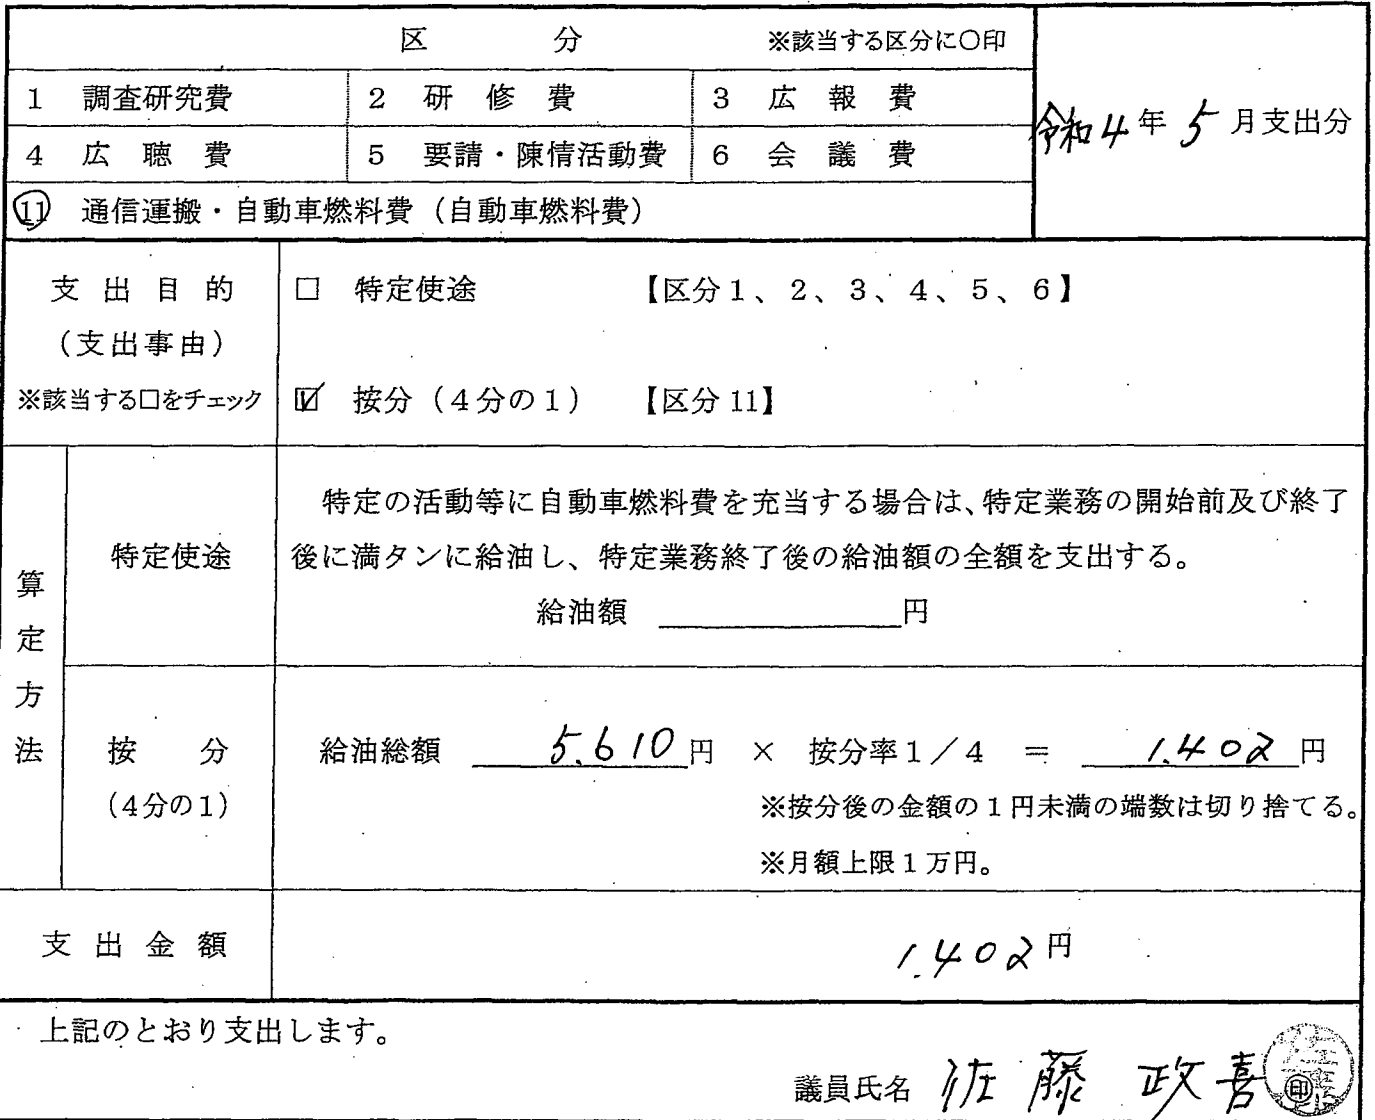 区 分 ※該当する区分に○印
1 調査研究費 2 研修費 3 広報費
令和4年5月支出分
4 広聴費 5 要請・陳情活動費 6 会議費
11 通信運搬・自動車燃料費（自動車燃料費）
支出目的
（支出事由）
※該当する□をチェック
□ 特定使途 【区分1、2、3、4、5、6】
☑ 按分（4分の1） 【区分11】
算定方法
特定使途
特定の活動等に自動車燃料費を充当する場合は、特定業務の開始前及び終了
後に満タンに給油し、特定業務終了後の給油額の全額を支出する。
給油額 ＿＿＿＿円
按分
（4分の1）
給油総額 5.610円 × 按分率1／4 ＝ 1.402円
※按分後の金額の1円未満の端数は切り捨てる。
※月額上限1万円。
支出金額 1.402円
上記のとおり支出します。
議員氏名 佐藤 政喜 ㊞